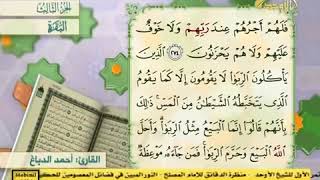 الجزء الثالث
البقرة
فَلَهُمْ أَجْرُهُمْ عِندَ رَبِّهِمْ وَلَا خَوْفٌ
عَلَيْهِمْ وَلَا هُمْ يَحْزَنُونَ ﴿٢٧٤﴾ الَّذِينَ
يَأْكُلُونَ الرِّبَوٰا لَا يَقُومُونَ إِلَّا كَمَا يَقُومُ
الَّذِي يَتَخَبَّطُهُ الشَّيْطَٰنُ مِنَ الْمَسِّ ذَٰلِكَ
بِأَنَّهُمْ قَالُوا إِنَّمَا الْبَيْعُ مِثْلُ الرِّبَوٰا وَأَحَلَّ
اللَّهُ الْبَيْعَ وَحَرَّمَ الرِّبَوٰا فَمَن جَاءَهُ مَوْعِظَةٌ
القارئ: أحمد الدباغ
الأول للشيخ الأوحد - منظرة الدقائق للامام المصلح - النور المبين في فضائل المعصومين للحكيم